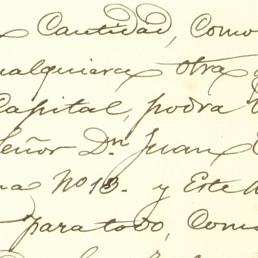 Cantidad, Como
cualquiera otra
Capital, podra
Señor Dn Juan
na No 13. y Este
para todo, Com